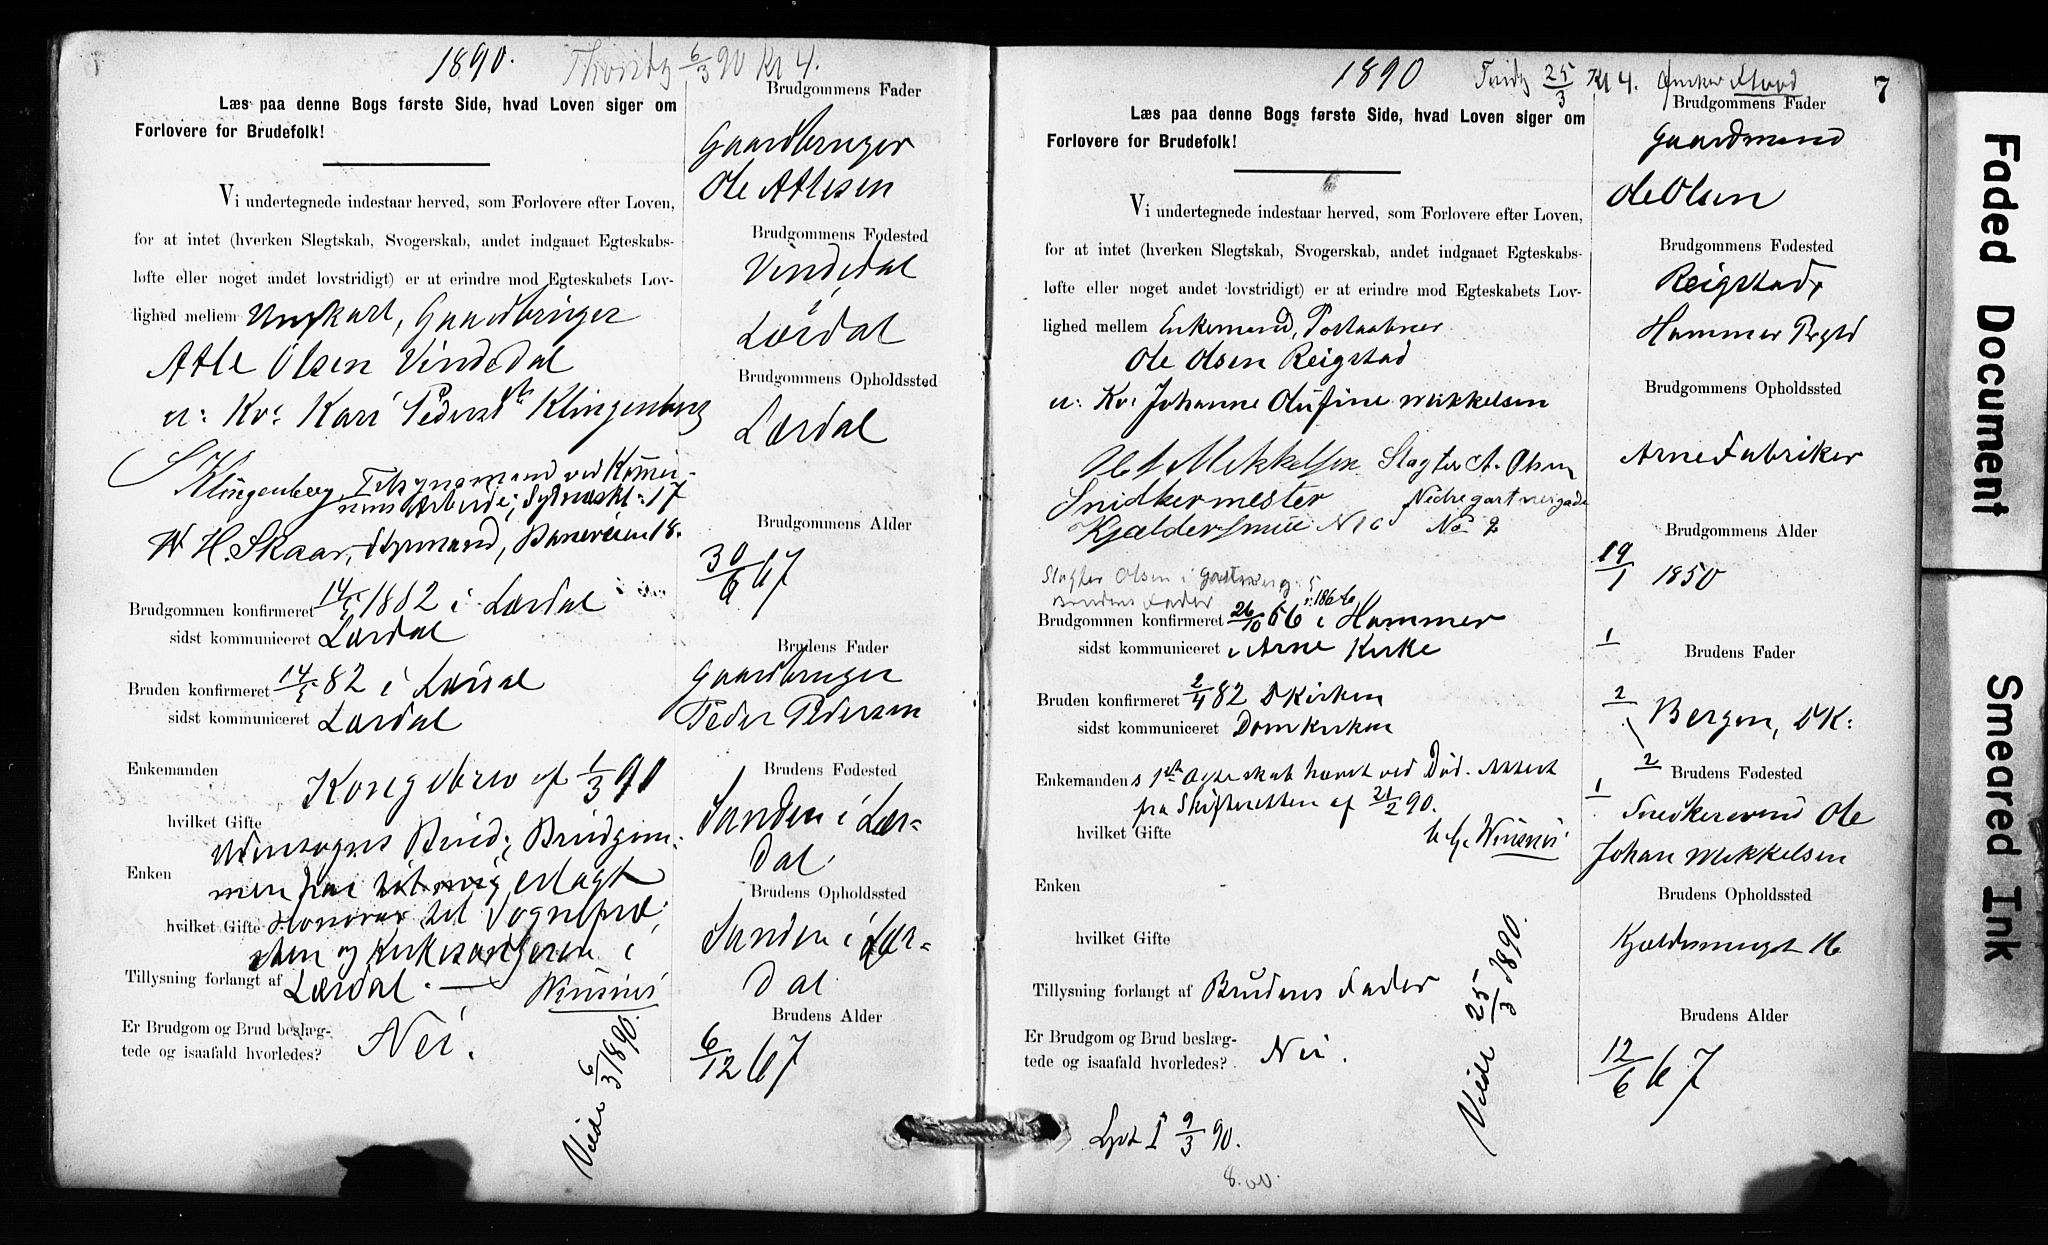 1890.
6/3 90 Kl 4.
Læs paa denne Bogs første Side, hvad Loven siger om
Forlovere for Brudefolk!
Vi undertegnede indestaar herved, som Forlovere efter Loven,
for at intet (hverken Slegtskab, Svogerskab, andet indgaaet Egteskabs-
løfte eller noget andet lovstridigt) er at erindre mod Egteskabets Lov-
lighed mellem Ungkarl, Gaardbruger
Atle Olsen Vindedal
u: Kv: Kari Pedersdtr Klingenberg
Klingenberg, Tilsynsmand ved Kommu-
nens Arbeide, 17
W H. Skaar, Styrmand, 18.
Brudgommen konfirmeret 14/5 1882 i Lærdal
sidst kommuniceret Lærdal
Bruden konfirmeret 14/5 82 i Lærdal
sidst kommuniceret Lærdal
Enkemanden
Kongebrev af 1/3 90
hvilket Gifte
Udensogns Brud; Brudgom-
Enken
men har erlagt
hvilket Gifte Honorar til Sognepræ-
sten og Kirkesangeren i
Tillysning forlangt af Lærdal. — Wiesnes
Er Brudgom og Brud beslæg-
tede og isaafald hvorledes? Nei.
Viede 6/3 1890.
Brudgommens Fader
Gaardbruger
Ole Atlesen
Brudgommens Fødested
Vindedal
i
Lærdal
Brudgommens Opholdssted
Lærdal
Brudgommens Alder
30/6 67
Brudens Fader
Gaardbruger
Peder Pedersen
Brudens Fødested
Sanden i Lær-
dal.
Brudens Opholdssted
Sanden i Lær-
dal
Brudens Alder
6/12 67
1890
25/3 Kl 4.
7
Læs paa denne Bogs første Side, hvad Loven siger om
Forlovere for Brudefolk!
Vi undertegnede indestaar herved, som Forlovere efter Loven,
for at intet (hverken Slegtskab, Svogerskab, andet indgaaet Egteskabs-
løfte eller noget andet lovstridigt) er at erindre mod Egteskabets Lov-
lighed mellem Enkemand, Postaabner
Ole Olsen Reigstad
u: Kv: Johanne Olufine Mikkelsen
Mikkelsen Slagter A. Olsen
Snidkermester
No 2
Slagter Olsen i
Brudens Fader
Brudgommen konfirmeret 26/10 66 i Hammer
sidst kommuniceret i Arne Kirke
Bruden konfirmeret 2/4 82 DKirken
sidst kommuniceret Domkirken
Enkemandens 1ste Egteskab hævet ved Død. Attest
fra Skifteretten af 21/2 90.
hvilket Gifte
Enken
hvilket Gifte
Tillysning forlangt af Brudens Fader
Er Brudgom og Brud beslæg-
tede og isaafald hvorledes? Nei.
Viede 25/3 1890.
Lyst I 9/3 90.
Brudgommens Fader
Gaardmand
Ole Olsen
Brudgommens Fødested
Reigstad,
Hammer Prgld
Brudgommens Opholdssted
Arne Fabriker
Brudgommens Alder
19/1 1850
1
Brudens Fader
2
Bergen, DK:
2
Brudens Fødested
1
Snedkersvend Ole
Johan Mikkelsen
Brudens Opholdssted
Kjeldersmugt 16
Brudens Alder
12/6 67
Faded Document
Smeared Ink